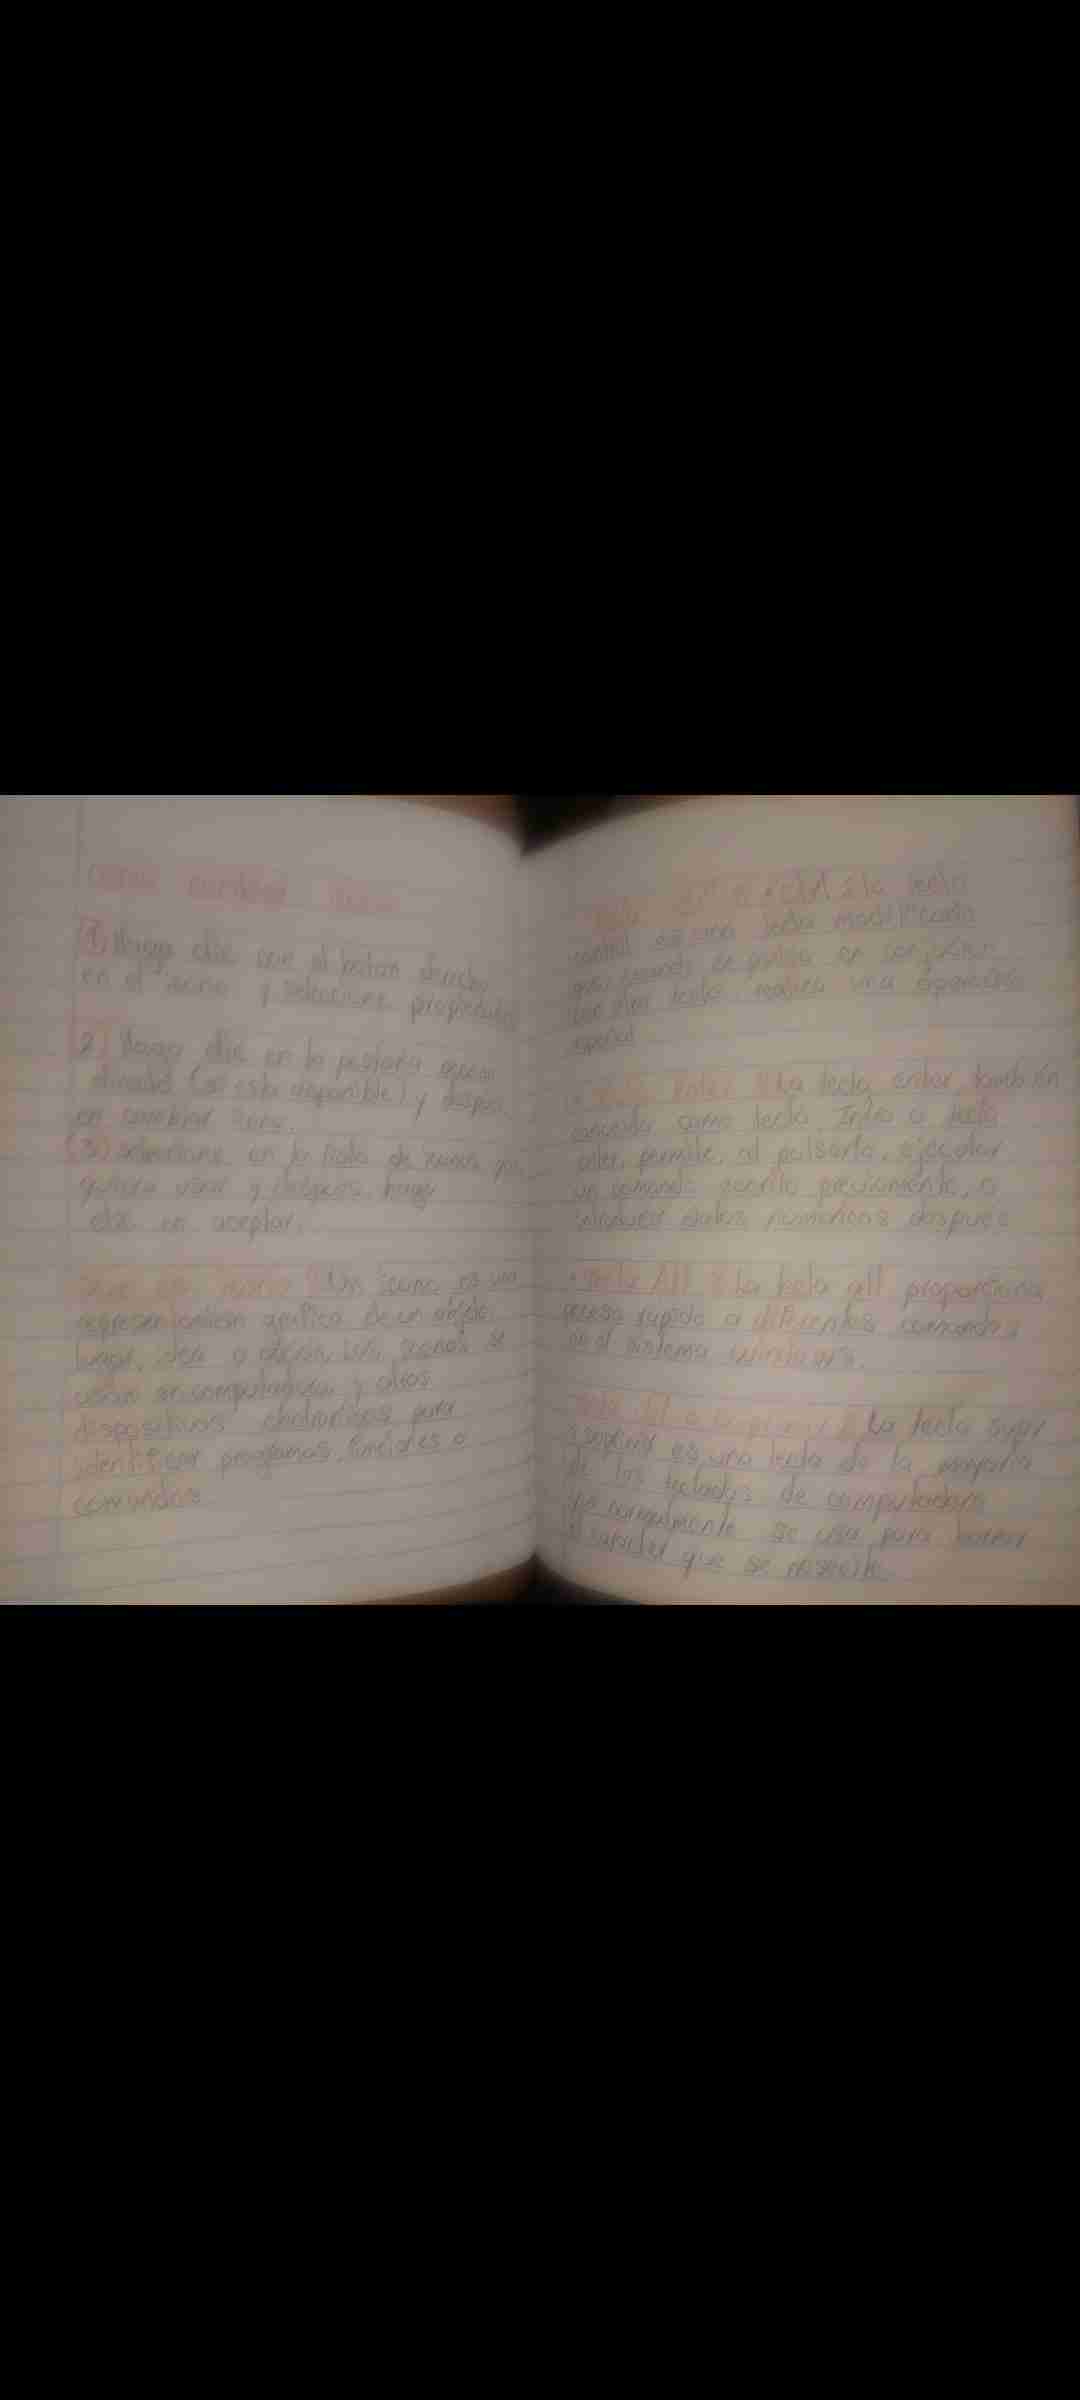 como cambiar icono
1) Haga clic con el boton derecho
en el icono y seleccione propiedades
2) Haga clic en la pestaña acceso
directo (si esta disponible) y despues
en cambiar icono.
(3) seleccione en la lista de iconos que
quiera usar y despues haga
clic en aceptar.
Un icono es una
representacion grafica de un objeto,
lugar, idea o Los iconos se
usan en computadoras y otros
dispositivos electronicos para
identificar programas, funciones o
comandos
o ctrl : la tecla
control es una tecla modificadora
que cuando se pulsa en conjusion
con otra tecla, realiza una operacion
especial
tecla Enter : La tecla enter, tambien
conocida como tecla Intro o tecla
permite, al pulsarla, ejecutar
un comando escrito previamente, o
introducir datos numericos despues
• tecla Alt : La tecla alt proporciona
acceso rapido a diferentes comandos
en el sistema windows.
tecla o : La tecla supr
o suprimir es una tecla de la mayoria
de los teclados de computadora
que normalmente se usa para borrar
el caracter que se